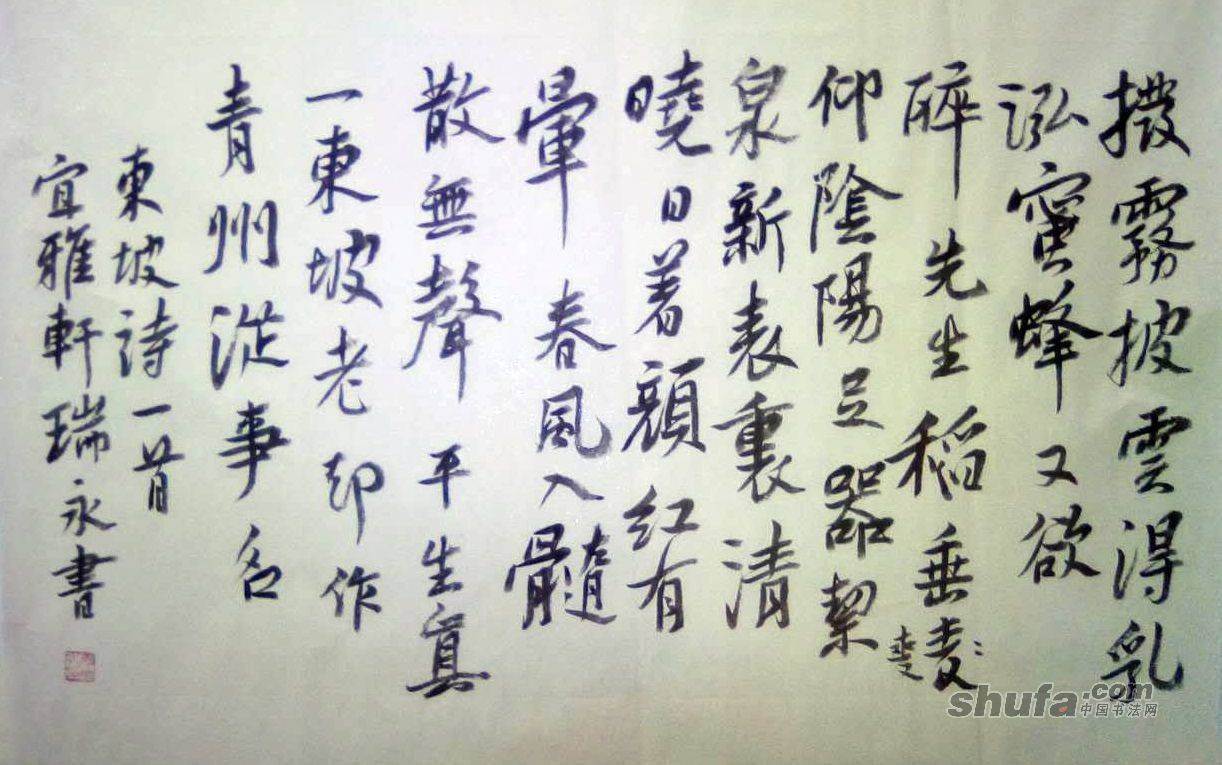 撥霧披雲得乳
泓蜜蜂又欲
醉先生稻垂麥
仰陰陽足器絜
泉新表裏清
曉日着顔紅有
暈春風入髓
散無聲平生真
一東坡老却作
青州從事名
東坡詩一首
宜雅軒瑞永書
shufa.com
中国书法网